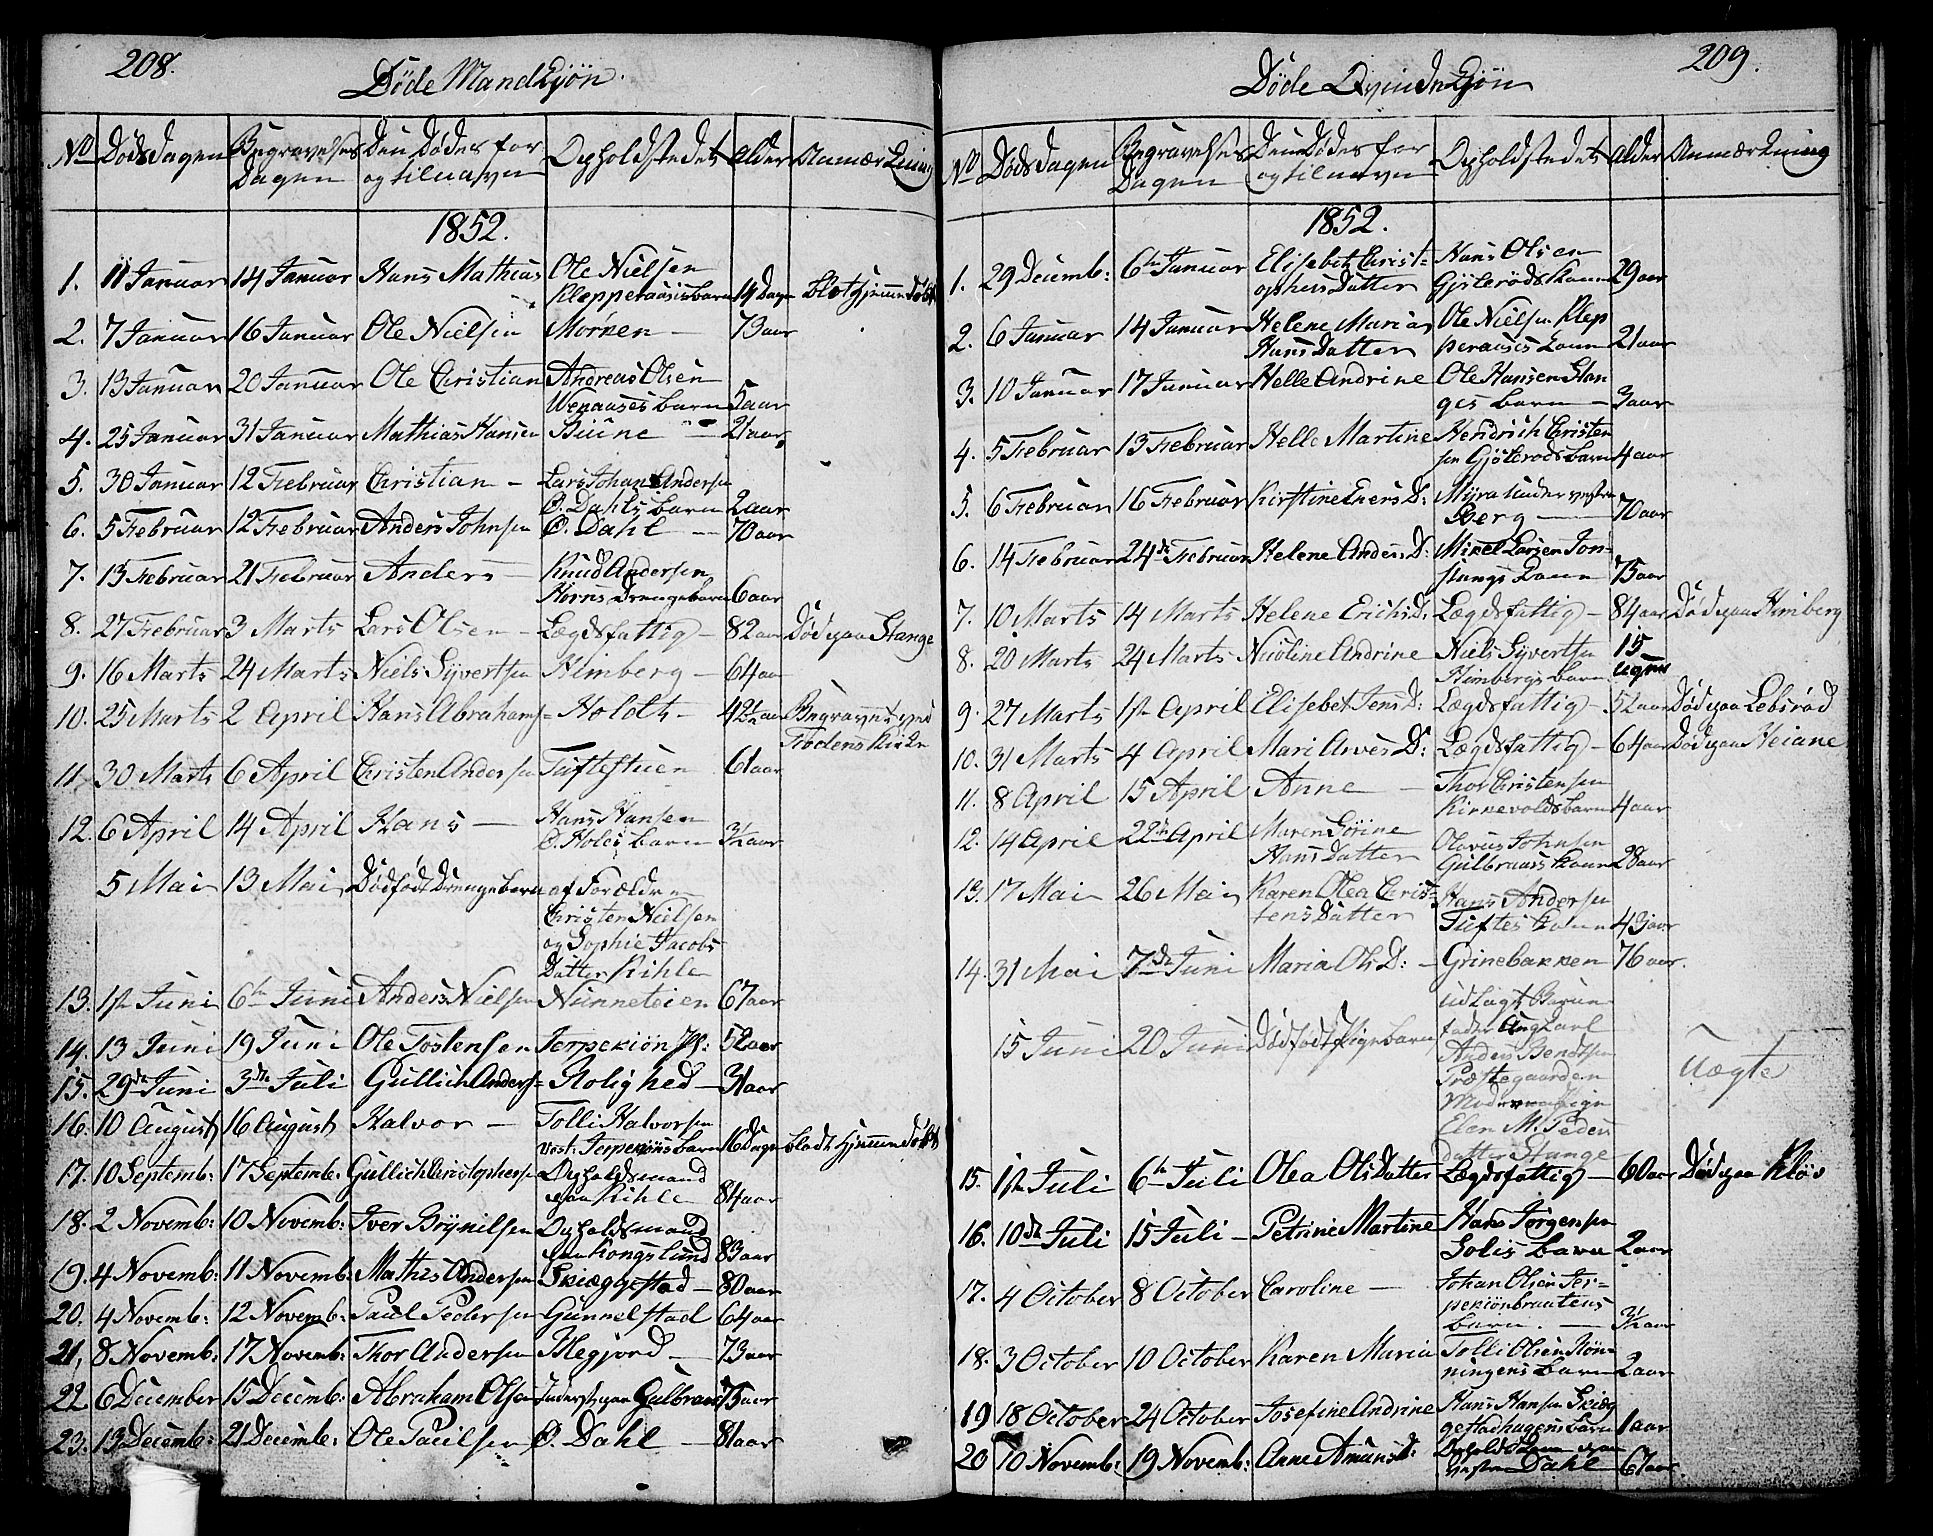 208.
Döde Mandkjön.
No Dödsdagen Begravelses Dagen Den Dødes for og tilnavn Opholdstedet Alder Anmærkning
1852.
1. 11 Januar 14 Januar Hans Mathias Ole Nielsen Klepperaasis barn 14 Dage blot hjemme döbt
2. 7 Januar 16 Januar Ole Nielsen Mörken 73 aar
3. 13 Januar 20 Januar Ole Christian Andreas Olsen Weraases barn 5 aar
4. 25 Januar 31 Januar Mathias Hansen Biune 21 aar
5. 30 Januar 12 Februar Christian Lars Johan Andersen Ö. Dahls barn 2 aar
6. 5 Februar 12 Februar Anders Johnsen Ö. Dahl 70 aar
7. 13 Februar 21 Februar Anders Knud Andersen Horns Drengebarn 6 aar
8. 27 Februar 3 Marts Lars Olsen Lægdsfattig 82 aar Död paa Stange
9. 16 Marts 24 Marts Niels Syvertsen Himberg 64 aar
10. 25 Marts 2 April Hans Abrahams= Holoth 42½ aar Begravet ved Trödens Kirke
11. 30 Marts 6 April Christen Andersen Tuftestuen 61 aar
12. 6 April 14 April Hans Hans Hansen Ö. Holes barn 3½ aar
5 Mai 13 Mai Dödfödt Drengebarn af Forældre Christen Nielsen og Sophie Jacobs Datter Kihle
13. 1ste Juni 6te Juni Anders Nielsen Nunneteien 67 aar
14. 13 Juni 19 Juni Ole Tostensen Jerpekiön Pl: 52 aar
15. 29de Juni 3die Juli Gullich Anders= Rolighed 31 aar
16. 10 August 16 August Halvor Tolli Halvorsen vest. Jerpekiöns barn 16 Dage bladt hjemme döbt
17. 10 Septemb: 17 Septemb: Gullich Christophersen Opholdsmand paa Kihle 84 aar
18. 2 Novemb: 10 Novemb: Iver Brynilsen Opholdsmand paa Kongslund 83 aar
19. 4 Novemb: 11 Novemb: Mathis Andersen Skiæggestad 80 aar
20. 4 Novemb: 12 Novemb: Paul Pedersen Gunnelstad 64 aar
21. 8 Novemb: 17 Novemb: Thor Andersen Klegjord 73 aar
22. 6 December 15 Decemb: Abraham Olsen Inderst paa Gulbrans 75 aar
23. 13 Decemb: 21 Decemb: Ole Paulsen Ö. Dahl 81 aar
209.
Döde Qvindekjön
No Dödsdagen Begravelses Dagen Den Dødes for og tilnavn Opholdstedet Alder Anmærkning
1852.
1. 29 Decemb: 6te Januar Elisebet Christ= ophers Datter Hans Olsen Gjöteröds Kone 29 aar
2. 6 Januar 14 Januar Helene Maria Hans Datter Ole Nielsen Klep peraases Kone 21 aar
3. 10 Januar 17 Januar Helle Andrine Ole Hansen Stan ges barn 3 aar
4. 5 Februar 13 Februar Helle Martine Hendrich Christen sen Gjöteröds barn 4 aar
5. 6 Februar 16 Februar Kirstine Eners D: Myra under vestre Berg 70 aar
6. 14 Februar 24de Februar Helene Anders D: Mikel Larsen Jon= stangs Kone 75 aar
7. 10 Marts 14 Marts Helene Erichs D: Lægdsfattig 84 aar Död paa Himberg
8. 20 Marts 24 Marts Nicoline Andrine Niels Syvertsen Himbergs barn 15 Uger
9. 27 Marts 1ste April Elisebet Jens D: Lægdsfattig 52 aar Död paa Lebsröd
10. 31 Marts 4 April Mari Arves D: Lægdsfattig 64 aar Död paa Heiane
11. 8 April 15 April Anne Thor Christensen Kirkevolds barn 4 aar
12. 14 April 22de April Maren Sörine Hans Datter Olavus Johnsen Gulbrans Kone 28 aar
13. 17 Mai 26 Mai Karen Olea Chris= tens Datter Hans Andersen Tuftes Kone 43 aar
14. 31 Mai 7de Juni Maria Ols D: Grinebakken 76 aar.
15 Juni 20 Juni Dödfödt Pigebarn Udlagt Barne fader Ung Karl Anders Bendtsen Præstegaarden Moder Pige Elen M. Peders datter Stange Uægte
15. 1ste Juli 6te Juli Olea Ols Datter Lægdsfattig 60 aar Död paa Klöv
16. 10de Juli 15 Juli Petrine Martine Hans Jörgensen Solis barn 2 aar
17. 4 October 8 October Caroline Johan Olsen Jer= pekiönbraatens barn. 3½ aar
18. 3 October 10 October Karen Maria Tolli Olsen Rön= ningens barn 2 aar
19 18 October 24 October Josefine Andrine Hans Hansen Skiæg gestadhagens barn 1 aar
20 10 Novemb: 19 Novemb: Anne Amunds D: Opholds Kone paa vestre Dahl 67 aar